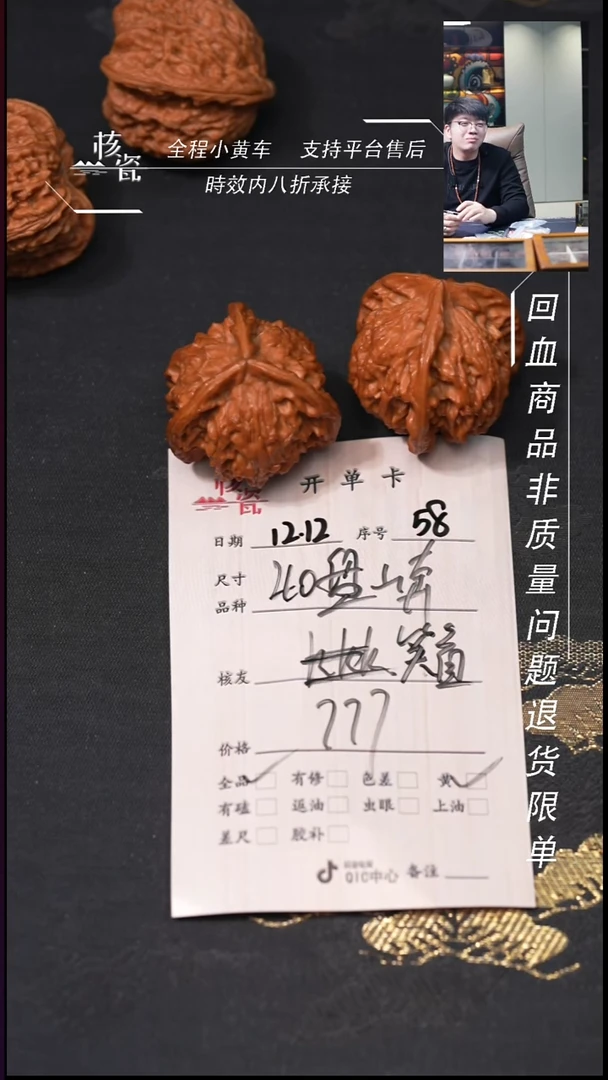 核瓷
全程小黄车 支持平台售后
時效内八折承接
回血商品非质量问题退货限单
核瓷
开单卡
日期 12.12 序号 58
尺寸
品种 40盘山
核友
价格 777
全品 有修 色差 黄
有磕 返油 虫眼 上油
差尺 胶补
QIC中心 备注